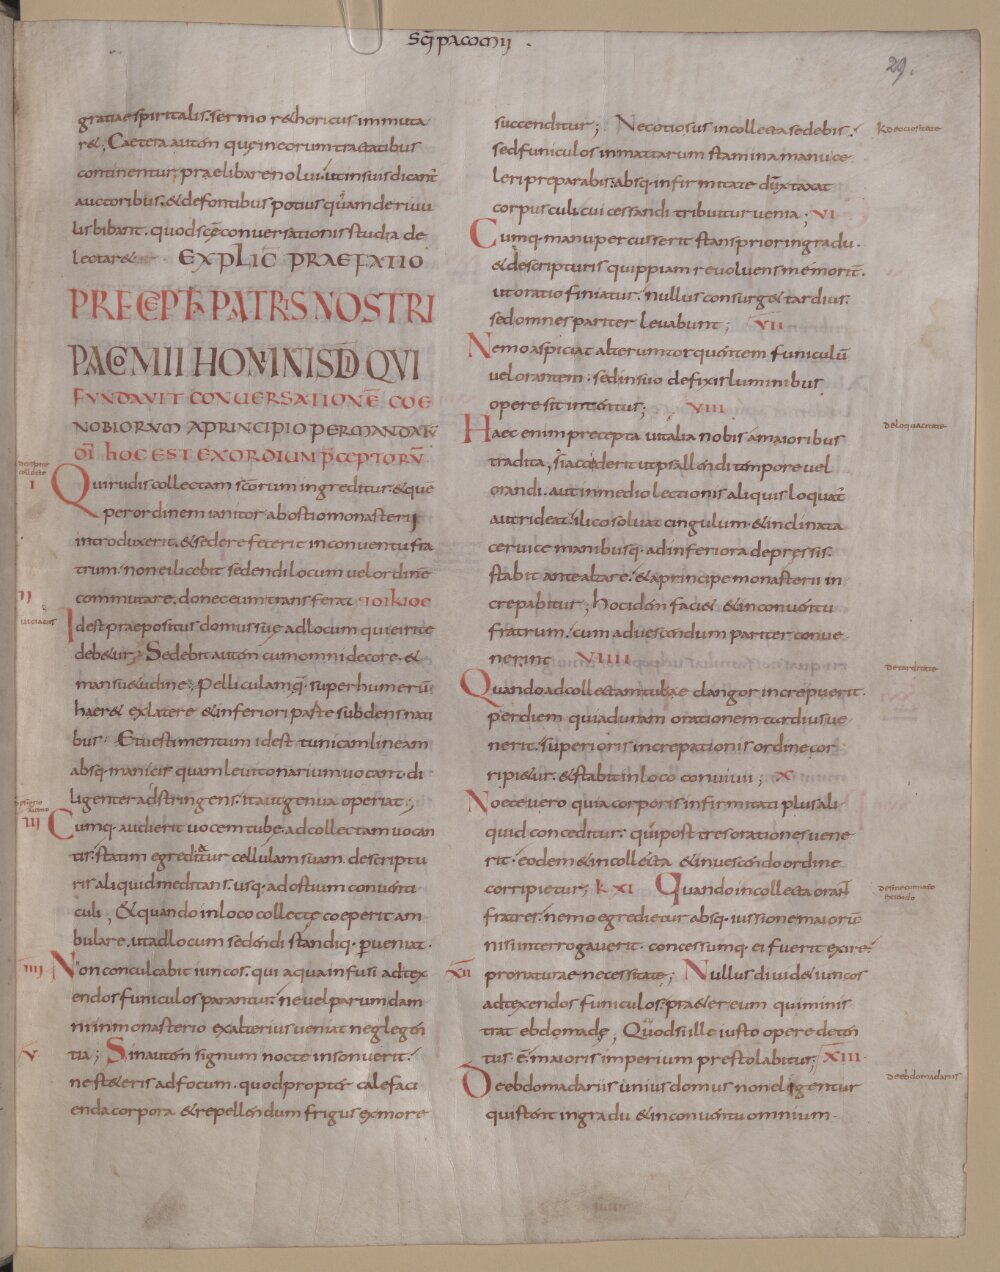 Sc̅i pacomii .
29.
gratiae spiritalis. sermo rethoricus inmuta
ret; Caetera autem quę in eorum tractatibus
continentur, praelibare nolui. ut in suis dicant̅
auctoribus. & de fontibus potius quam deriuu
lis bibant. quod sc̅ę conuersationis studia de
lectar&
EXPLIC̅ PRAEFATIO
PRECEPTA PATRIS NOSTRI
PACOMII HOMINIS D̅I QVI
FVNDAVIT CONVERSATIONE̅ COE
NOBIORVM A PRINCIPIO PER MANDATV̅
D̅I hOC EST EXORDIUM P̅CEPTORV̅
I
Qui rudis collectam sc̅orum ingreditur. & que̅
per ordinem ianitor ab ostio monasterii
introduxerit, & sedere fecerit in conuentu fra
trum. non ei licebit sedendi locum uel ordine̅
commutare. donec eum transferat ΤΟΙΚΙΟC
II
Id est praepositus domus suę ad locum qui ei rite
debetur; Sedebit autem cum omni decore. &
mansuetudine; Pelliculamq̅. super humeru̅.
haeret ex latere & inferiori parte subdens nati
bus. Et uestimentum id est tunicam lineam
absq· manicis quam leuitonarium uocant di
ligenter adstringens. ita ut genua operiat;
III
Cumq· audierit uocem tubę. ad collectam uocan
tis. statim egreditur cellulam suam. de scriptu
ris aliquid meditans. usq· ad ostium conuenti
culi; Et quando in loco collectę coeperit am
bulare. ut ad locum sedendi standiq· p̅ueniat.
IIII
Non conculcabit iuncos. qui aqua infusi ad tex
endos funiculos parantur. ne uel paruum dam
ni in monasterio ex alterius ueniat neglegen
V
tia; Sin autem signum nocte insonuerit.
ne steteris ad focum. quod propter calefaci
enda corpora & repellendum frigus ex more
succenditur; Nec otiosus in collecta sedebis.
k de ociositate
sed funiculos in mattarum stamina manu ce
leri preparabis. absq· infirmitate du̅taxat
corpusculi. cui cessandi tribuitur uenia; VI
Cumq· manu percusserit stans prior in gradu.
& de scripturis quippiam reuoluens memorit̅.
ut oratio finiatur. nullus consurg& tardius.
sed omnes pariter leuabunt; VII
Nemo aspiciat alterum torquentem funiculu̅
uel orantem. sed in suo defixis luminibus
opere sit intentus; VIII
de loquacitate
Haec enim precepta uitalia nobis a maioribus
tradita, si acciderit ut psallendi tempore uel
orandi. aut in medio lectionis aliquis loquat̅
aut rideat. ilico soluat cingulum. & inclinata
ceruice manibusq· ad inferiora depressis.
stabit ante altare. & a principe monasterii in
crepabitur; hoc idem faci& & in conuentu
fratrum. cum ad uescendum pariter conue
nerint VIIII
de tarditate
Quando ad collectam tubae clangor increpuerit.
per diem qui ad unam orationem tardius ue
nerit. superioris increpationis ordine cor
ripietur. & stabit in loco conuiuii; X
Nocte uero quia corporis infirmitati plus ali
quid conceditur. qui post tres orationes uene
rit. eodem & in collecta & in uescendo ordine
corripietur; k XI Quando in collecta orant
fratres. nemo egredietur absq· iussione maioru̅
nisi interrogauerit. concessumq· ei fuerit exire.
XII
pro naturae necessitate; Nullus diuidet iuncos
ad texendos funiculos. praeter eum qui minis
trat ebdomadę; Quod si ille iusto opere deten
tus e̅. maioris imperium prestolabitur; XIII
de ebdomadariis
De ebdomadariis unius domus non eligentur
qui stent in gradu & in conuentu omnium